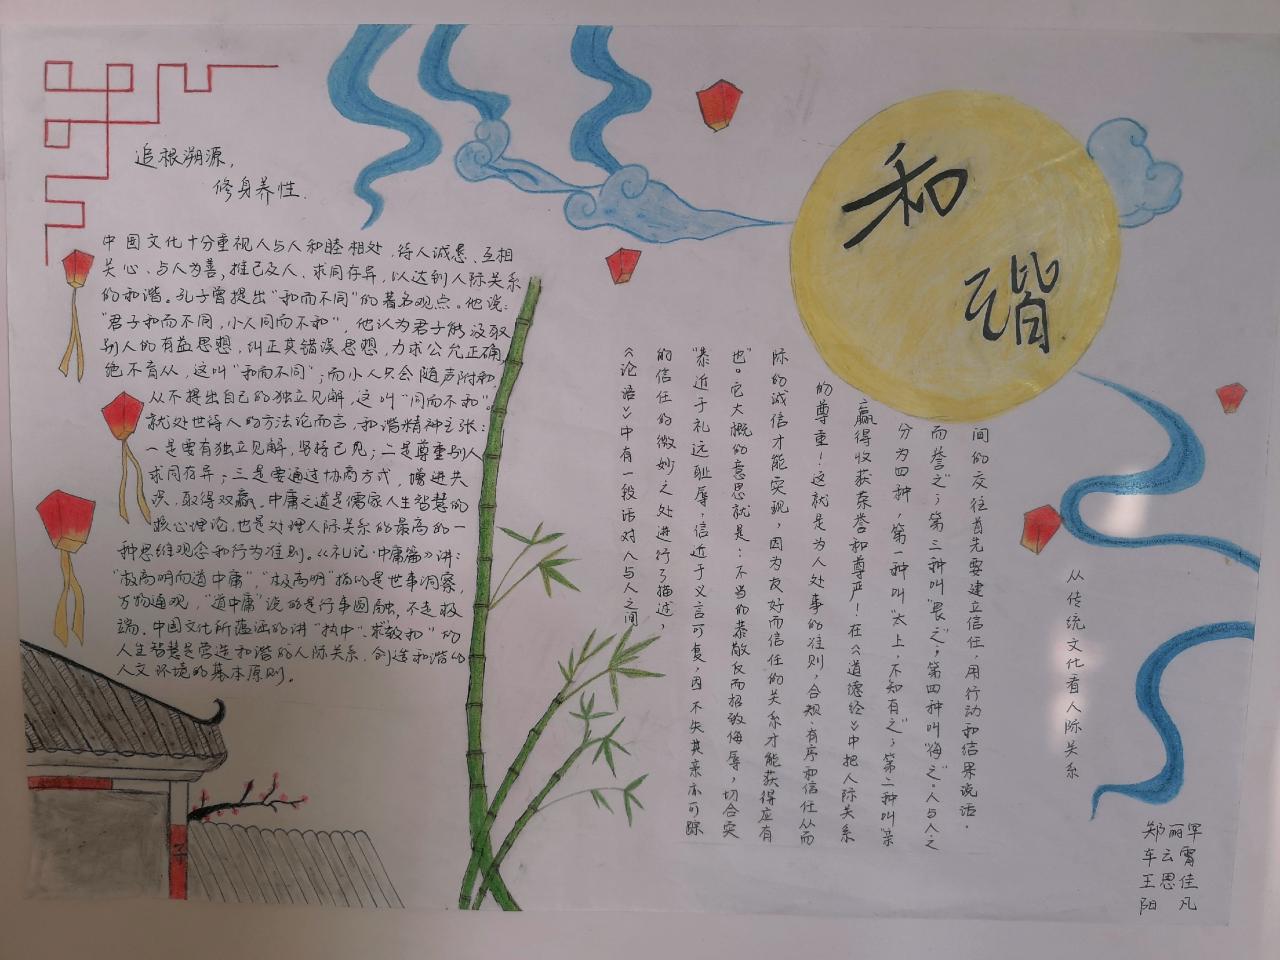 和
谐
追根溯源，
修身养性.
中国文化十分重视人与人和睦相处，待人诚恳、互相
关心、与人为善，推己及人、求同存异，以达到人际关系
的和谐。孔子曾提出“和而不同”的著名观点。他说：
“君子和而不同，小人同而不和”，他认为君子能汲取
别人的有益思想，纠正其错误思想，力求公允正确，
绝不盲从，这叫“和而不同”；而小人只会随声附和，
从不提出自己的独立见解，这叫“同而不和”。
就处世待人的方法论而言，和谐精神主张：
一是要有独立见解，坚持己见；二是尊重别人
求同存异；三是要通过协商方式，增进共
识，取得双赢。中庸之道是儒家人生智慧的
核心理论，也是处理人际关系的最高的一
种思维观念和行为准则。《礼记·中庸篇》讲：
“极高明而道中庸”，“极高明”指的是世事洞察，
万物通观，“道中庸”说的是行事圆融，不走极
端。中国文化所蕴涵的讲“执中”、求“致和”的
人生智慧是营造和谐的人际关系、创造和谐的
人文环境的基本原则。
从传统文化看人际关系
《论语》中有一段话对人与人之间
的信任的微妙之处进行了描述，
“恭近于礼远耻辱，信近于义言可复，因不失其亲亦可踪
也”。它大概的意思就是：不当的恭敬反而招致侮辱，切合实
际的诚信才能实现，因为友好而信任的关系才能获得应有
的尊重！这就是为人处事的准则，合规、有序和信任从而
赢得收获荣誉和尊严！在《道德经》中把人际关系
分为四种，第一种叫“太上，不知有之”；第二种叫“亲
而誉之”；第三种叫“畏之”；第四种叫“侮之”。人与人之
间的交往首先要建立信任，用行动和结果说话。
郑丽军
车云霄
王思佳
阳凡